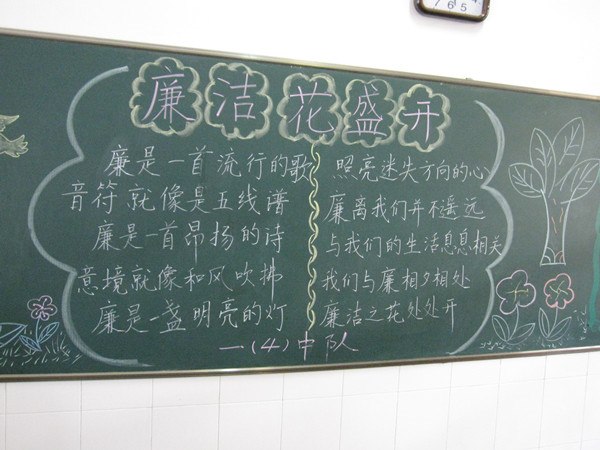 廉洁花盛开
廉是一首流行的歌
音符就像是五线谱
廉是一首昂扬的诗
意境就像和风吹拂
廉是一盏明亮的灯
照亮迷失方向的心
廉离我们并不遥远
与我们的生活息息相关
我们与廉相夕相处
廉洁之花处处开
一(4)中队
7 6 5